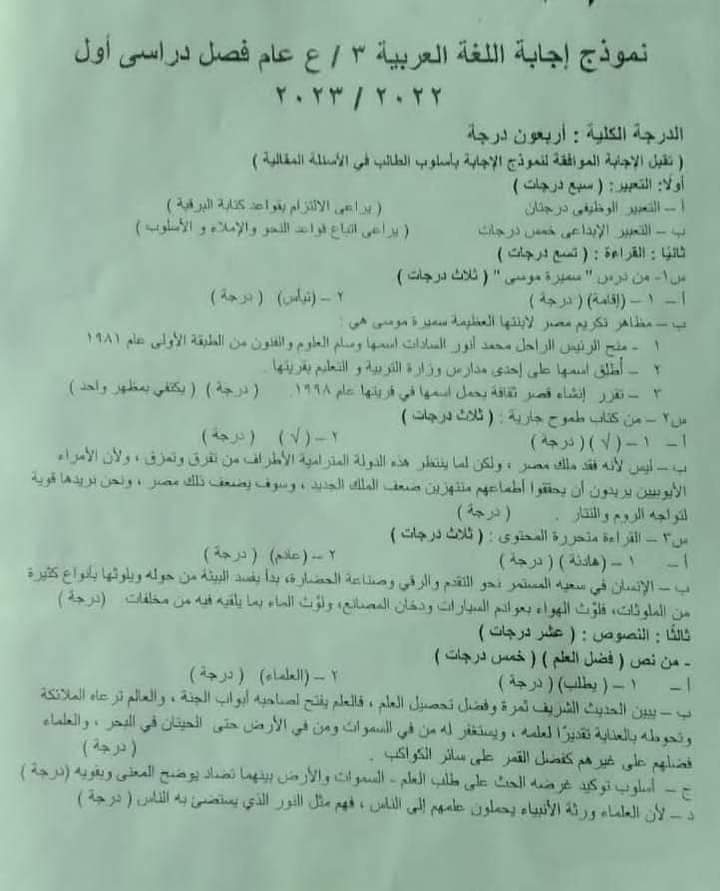 نموذج إجابة اللغة العربية ٣ / ع عام فصل دراسى أول
٢٠٢٢ / ٢٠٢٣
الدرجة الكلية : أربعون درجة
( تقبل الإجابة الموافقة لنموذج الإجابة بأسلوب الطالب في الأسئلة المقالية )
أولًا: التعبير: ( سبع درجات )
أ – التعبير الوظيفى درجتان ( يراعى الالتزام بقواعد كتابة البرقية )
ب – التعبير الإبداعى خمس درجات ( يراعى اتباع قواعد النحو والإملاء و الأسلوب )
ثانيًا : القراءة : ( تسع درجات )
س١- من درس " سميرة موسى " ( ثلاث درجات )
أ – ١ – (إقامة) ( درجة ) ٢ – (تيأس) ( درجة )
ب – مظاهر تكريم مصر لابنتها العظيمة سميرة موسى هي :
١ - منح الرئيس الراحل محمد أنور السادات اسمها وسام العلوم والفنون من الطبقة الأولى عام ١٩٨١
٢ - أُطلق اسمها على إحدى مدارس وزارة التربية و التعليم بقريتها .
٣ - تقرر إنشاء قصر ثقافة يحمل اسمها في قريتها عام ١٩٩٨. ( درجة ) ( يكتفي بمظهر واحد )
س٢ – من كتاب طموح جارية : ( ثلاث درجات )
أ – ١ – ( √ ) ( درجة ) ٢ – ( √ ) ( درجة )
ب – ليس لأنه فقد ملك مصر ، ولكن لما ينتظر هذه الدولة المترامية الأطراف من تفرق وتمزق ، ولأن الأمراء
الأيوبيين يريدون أن يحققوا أطماعهم منتهزين ضعف الملك الجديد ، وسوف يضعف ذلك مصر ، ونحن نريدها قوية
لتواجه الروم والتتار . ( درجة )
س٣ – القراءة متحررة المحتوى : ( ثلاث درجات )
أ – ١ – ( هادئة ) ( درجة ) ٢ – (عادم) ( درجة )
ب – الإنسان في سعيه المستمر نحو التقدم والرقي وصناعة الحضارة، بدأ يفسد البيئة من حوله ويلوثها بأنواع كثيرة
من الملوثات، فلوّث الهواء بعوادم السيارات ودخان المصانع، ولوّث الماء بما يلقيه فيه من مخلفات (درجة )
ثالثًا : النصوص : ( عشر درجات )
- من نص ( فضل العلم ) ( خمس درجات )
أ – ١ – ( يطلب) ( درجة ) ٢ – (العلماء) ( درجة )
ب – يبين الحديث الشريف ثمرة وفضل تحصيل العلم ، فالعلم يفتح لصاحبه أبواب الجنة ، والعالم ترعاه الملائكة
وتحوطه بالعناية تقديرًا لعلمه ، ويستغفر له من في السموات ومن في الأرض حتى الحيتان في البحر ، والعلماء
فضلهم على غيرهم كفضل القمر على سائر الكواكب . ( درجة )
ج – أسلوب توكيد غرضه الحث على طلب العلم - السموات والأرض بينهما تضاد يوضح المعنى ويقويه (درجة )
د – لأن العلماء ورثة الأنبياء يحملون علمهم إلى الناس ، فهم مثل النور الذي يستضئ به الناس ( درجة )